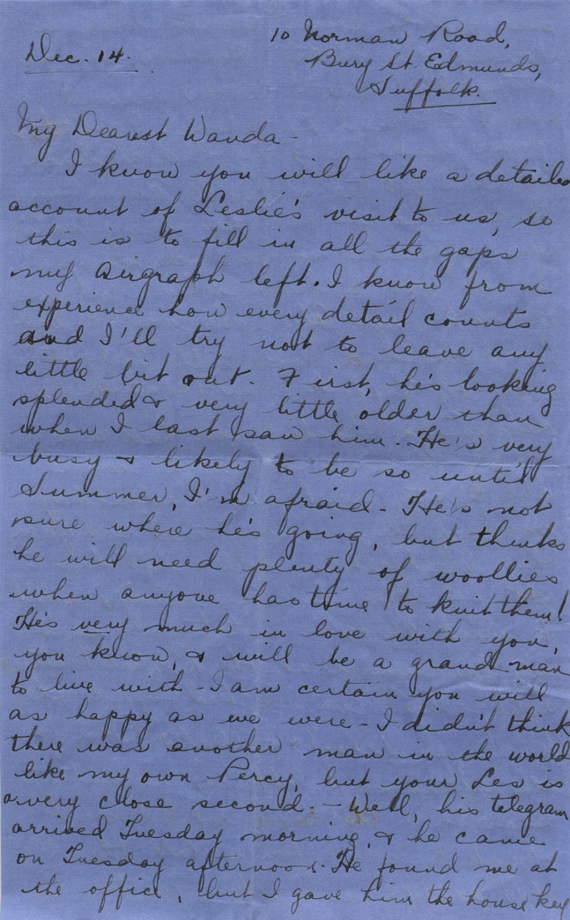 10 Norman Road,
Dec. 14.
Bury St. Edmunds,
Suffolk.
My Dearest Wanda -
I know you will like a detailed
account of Leslie's visit to us, so
this is to fill in all the gaps
my airgraph left. I know from
experience how every detail counts
and I'll try not to leave any
little bit out. First, he's looking
splended & very little older than
when I last saw him. He's very
busy & likely to be so until
Summer, I'm afraid - He's not
sure where he's going, but thinks
he will need plenty of woollies
when anyone has time to knit them!
He's very much in love with you,
you know, & will be a grand man
to live with - I am certain you will
as happy as we were - I didn't think
there was another man in the world
like my own Percy, but your Les is
a very close second. - Well, his telegram
arrived Tuesday morning, & he came
on Tuesday afternoon. He found me at
the office, but I gave him the house key